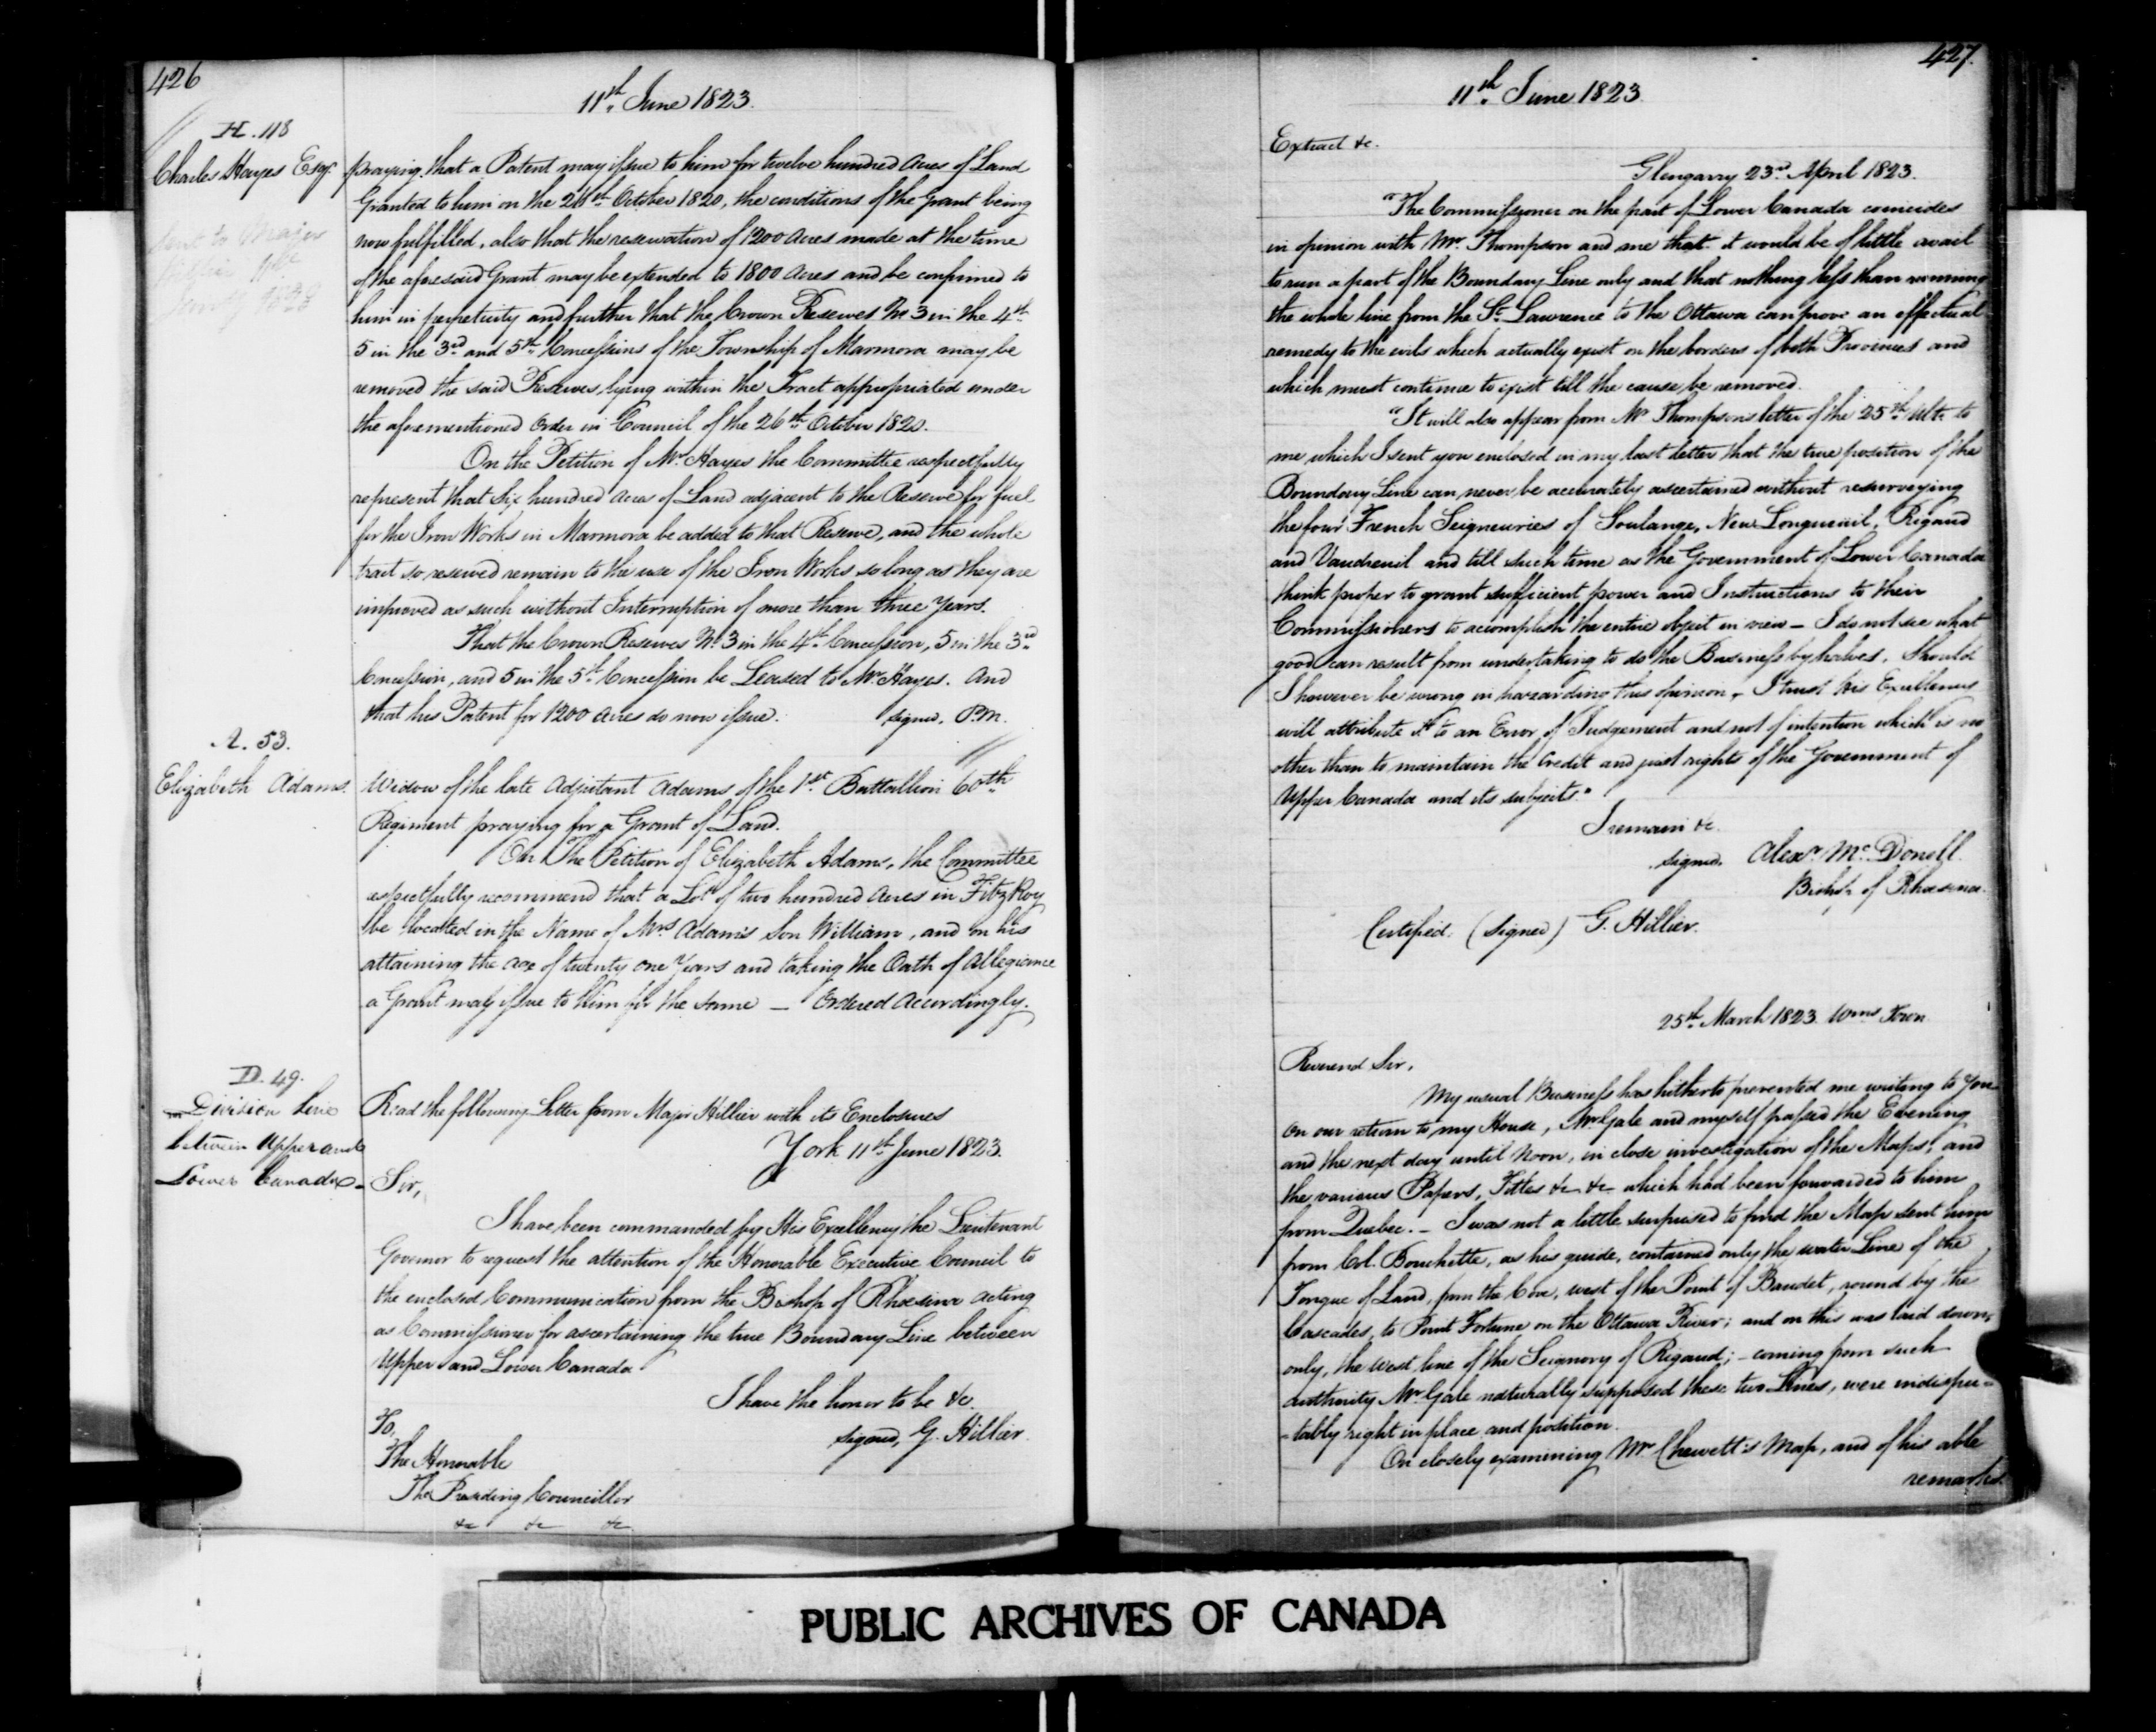 426
11th June 1823.
H. 118
Charles Hayes Esqr.
praying that a Patent may issue to him for twelve hundred Acres of Land
Granted to him on the 26th October 1820, the conditions of the grant being
now fulfilled, also that the reservation of 1200 Acres made at the time
of the aforesaid Grant may be extended to 1800 Acres and be confirmed to
him in perpetuity and further that the Crown Reserves No 3 in the 4th
5 in the 3rd and 5th Concessions of the Township of Marmora may be
removed the said Reserves lying within the Tract appropriated under
the aforementioned Order in Council of the 26th October 1820.
On the Petition of Mr. Hayes the Committee respectfully
represent that Six hundred acres of Land adjacent to the Reserve for fuel
for the Iron Works in Marmora be added to that Reserve, and the whole
tract so reserved remain to the use of the Iron Works so long as they are
improved as such without Interruption of more than three Years.
That the Crown Reserves No. 3 in the 4th Concession, 5 in the 3rd
Concession, and 5 in the 5th Concession be Leased to Mr. Hayes. And
that his Patent for 1200 Acres do now issue. signed. P.M.
Sent to Major
Hillier 11th
A. 53.
Elizabeth Adams.
Widow of the late Adjutant Adams of the 1st Battallion 60th
Regiment praying for a Grant of Land.
On The Petition of Elizabeth Adams, the Committee
respectfully recommend that a Lot of two hundred Acres in FitzRoy
be located in the Name of Mrs Adams Son William, and on his
attaining the age of twenty one Years and taking the Oath of Allegiance
a Grant may issue to him for the same — Ordered Accordingly.
D. 49.
Division Line
between Upper and
Lower Canada.
Read the following Letter from Major Hillier with its Enclosures
York 11th June 1823.
Sir,
I have been commanded by His Excellency the Lieutenant
Governor to request the attention of the Honorable Executive Council to
the enclosed Communication from the Bishop of Rhœsina acting
as Commissioner for ascertaining the true Boundary Line between
Upper and Lower Canada
I have the honor to be &c.
signed, G. Hillier.
To,
The Honorable
The Presiding Councillor
&c &c &c
427.
11th June 1823.
Extract &c.
Glengarry 23rd April 1823.
"The Commissioner on the part of Lower Canada coincides
in opinion with Mr. Thompson and me that it would be of little avail
to run a part of the Boundary Line only and that nothing less than running
the whole line from the St. Lawrence to the Ottawa can prove an effectual
remedy to the evils which actually exist on the borders of both Provinces and
which must continue to exist till the cause be removed.
"It will also appear from Mr Thompson's letter of the 25th Ulto. to
me which I sent you enclosed in my last letter that the true position of the
Boundary Line can never be accurately ascertained without resurveying
the four French Seigneuries of Soulange, New Longueuil, Rigaud
and Vaudreuil and till such time as the Government of Lower Canada
think proper to grant sufficient power and Instructions to their
Commissioners to accomplish the entire object in view — I do not see what
good can result from undertaking to do the Business by halves. Should
I however be wrong in hazarding this opinion, I trust his Excellency
will attribute it to an Error of Judgement and not of intention which is no
other than to maintain the Credit and just rights of the Government of
Upper Canada and its subjects."
I remain &c.
signed, Alexr McDonell.
Bishop of Rhœsina.
Certified. (Signed) G. Hillier.
25th March 1823. Wms Town.
Reverend Sir,
My usual Business has hitherto prevented me writing to You
on our return to my House, Mr Gale and myself passed the Evening
and the next day until Noon, in close investigation of the Maps, and
the various Papers, Titles &c &c which had been forwarded to him
from Quebec. — I was not a little surprised to find the Map sent him
from Col. Bouchette, as his guide, contained only the water Line of the
Tongue of Land, from the Cove, west of the Point of Baudet, round by the
Cascades, to Point Fortune on the Ottawa River; and on this was laid down,
only, the west line of the Seignory of Rigaud; — coming from such
authority Mr Gale naturally supposed these two Lines, were indispu=
=tably right in place and position.
On closely examining Mr Chewett's Map, and of his able
remarks
PUBLIC ARCHIVES OF CANADA